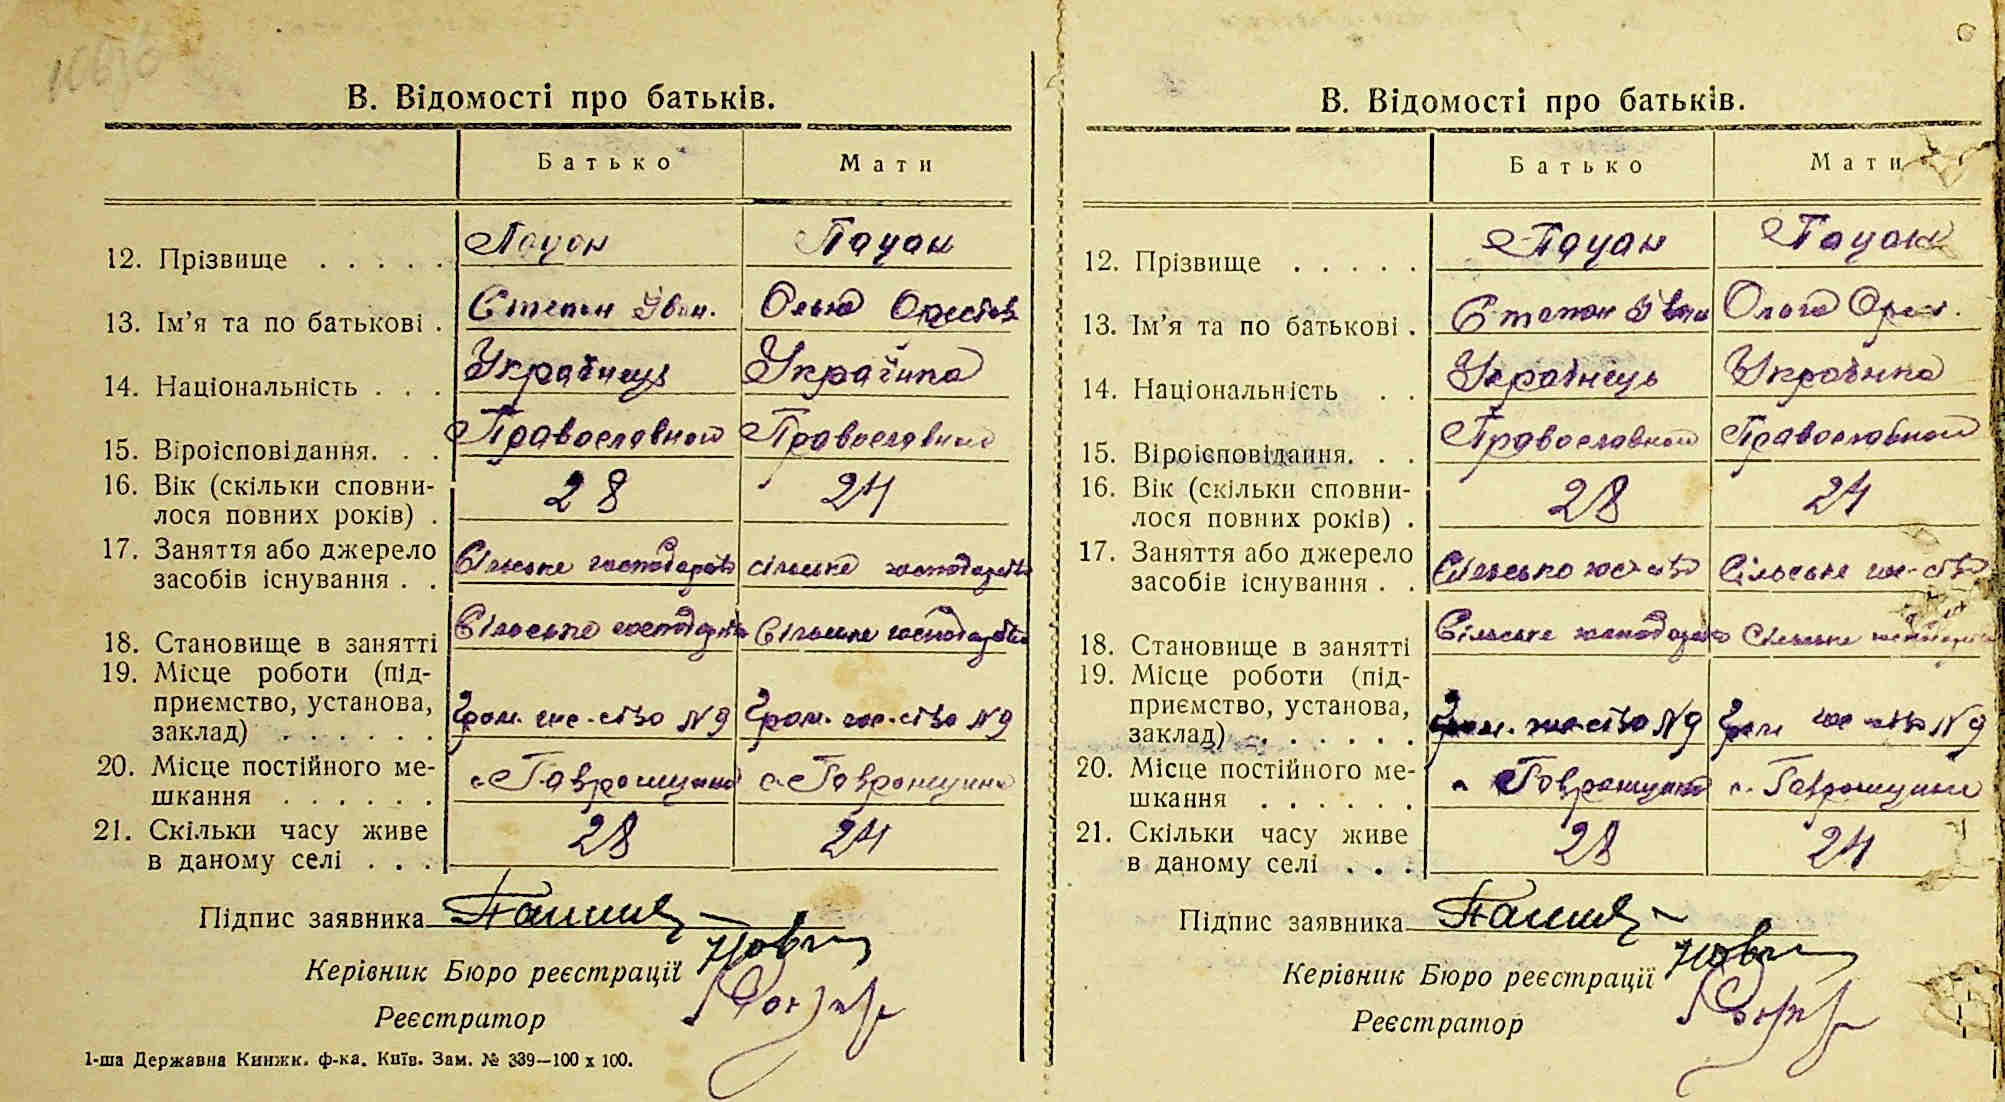 В. Відомості про батьків.
Батько Мати
12. Прізвище . . . . . Пацан Пацан
13. Ім'я та по батькові . Степан Іван. Ольга Орестов
14. Національність . . . Українець Українка
15. Віроісповідання. . . Православной Православной
16. Вік (скільки сповни-
лося повних років) . 28 24
17. Заняття або джерело
засобів існування . . Сільське господарство сільське господарство
18. Становище в занятті Сільське господарство Сільське господарство
19. Місце роботи (під-
приємство, установа,
заклад) . . . . . . Гром. гос-ство N 9 Гром. гос-ство N 9
20. Місце постійного ме-
шкання . . . . . . с. Гавронщина с. Гавронщина
21. Скільки часу живе
в даному селі . . . 28 24
Підпис заявника
Керівник Бюро реєстрації
Реєстратор
1-ша Державна Книжк. ф-ка. Київ. Зам. № 339—100 x 100.
В. Відомості про батьків.
Батько Мати
12. Прізвище . . . . . Пацан Пацан
13. Ім'я та по батькові . Степан Іван Ольга Орест.
14. Національність . . Українець Українка
15. Віроісповідання. . . Православной Православной
16. Вік (скільки сповни-
лося повних років) . 28 24
17. Заняття або джерело
засобів існування . . Сільсько гос-ство Сільське гос-ство
18. Становище в занятті Сільське господарство Сільське господарство
19. Місце роботи (під-
приємство, установа,
заклад) . . . . . . Гром. гос-ство N 9 Гром гос-ство N 9
20. Місце постійного ме-
шкання . . . . . . с. Гавронщина с. Гавронщина
21. Скільки часу живе
в даному селі . . . 28 24
Підпис заявника
Керівник Бюро реєстрації
Реєстратор